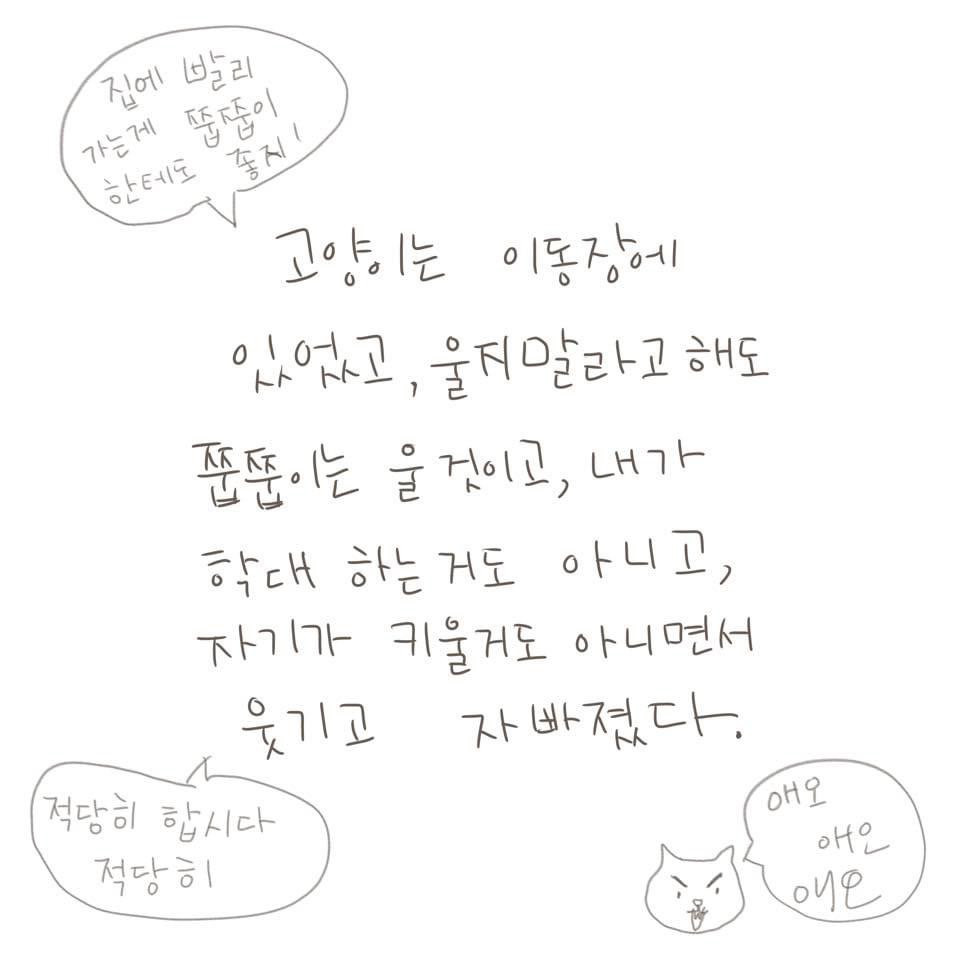 집에 빨리
가는게 쭙쭙이
한테도 좋지!
고양이는 이동장에
있었고, 울지말라고 해도
쭙쭙이는 울것이고, 내가
학대 하는거도 아니고,
자기가 키울거도 아니면서
웃기고 자빠졌다.
적당히 합시다
적당히
애오
애은
애오